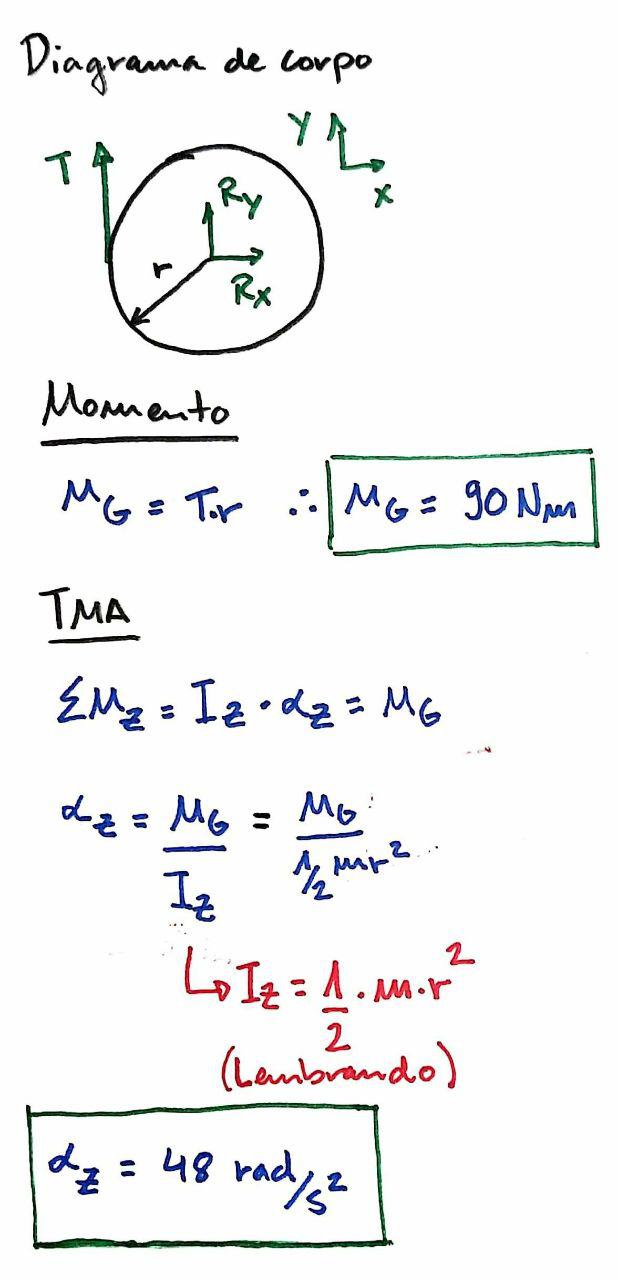 Diagrama de corpo
Y
T
X
Ry
r
Rx
Momento
M_G = T.r ∴ M_G = 90 Nm
TMA
ΣM_z = I_z · α_z = M_G
α_z = M_G / I_z = M_G / 1/2 mr²
↳ I_z = 1/2 . m.r²
(Lembrando)
α_z = 48 rad/s²